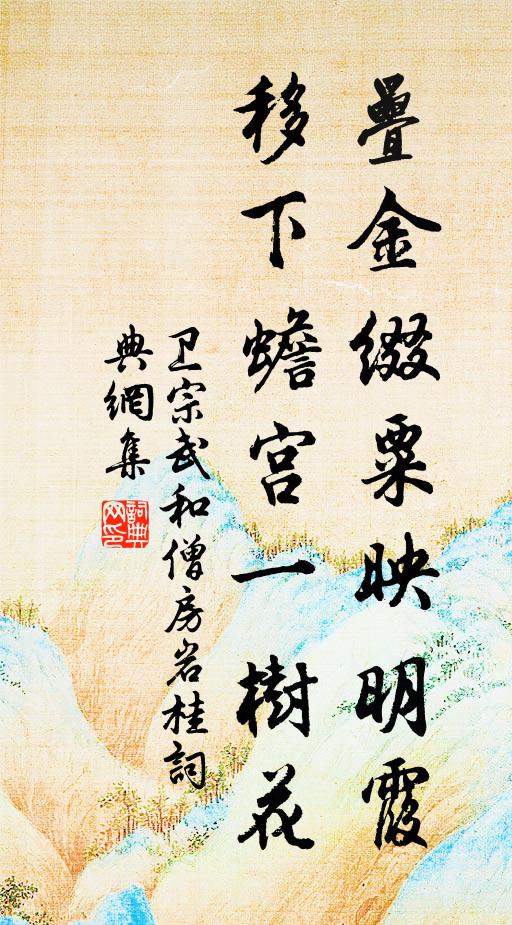 疊金綴粟映明霞
移下蟾宫一樹花
卫宗武和僧房岩桂詞
典網集
詞典网印